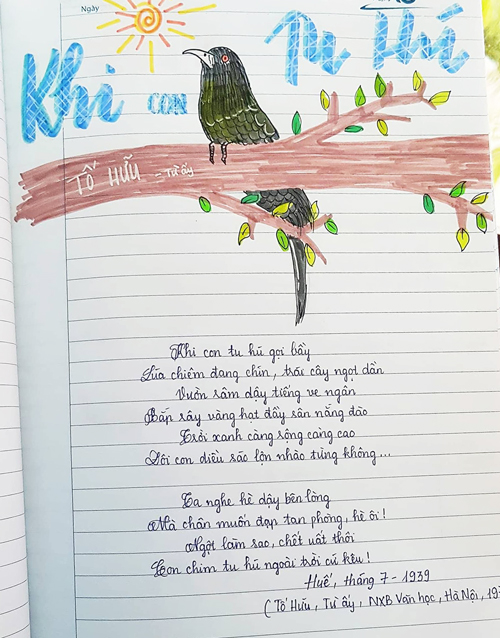 Ngày
Khi con Tu Hú
TỐ HỮU - Từ ấy
Khi con tu hú gọi bầy
Lúa chiêm đang chín, trái cây ngọt dần
Vườn râm dậy tiếng ve ngân
Bắp rây vàng hạt đầy sân nắng đào
Trời xanh càng rộng càng cao
Đôi con diều sáo lộn nhào từng không...
Ta nghe hè dậy bên lòng
Mà chân muốn đạp tan phòng, hè ôi!
Ngột làm sao, chết uất thôi
Con chim tu hú ngoài trời cứ kêu!
Huế, tháng 7 - 1939
(Tố Hữu, Từ ấy, NXB Văn học, Hà Nội,